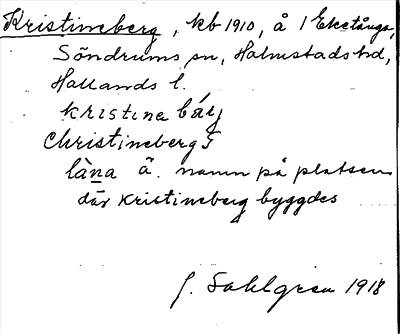 Kristineberg, kb 1910, å 1 Eketånga,
Söndrums sn, Halmstads hd,
Hallands l.
kristina bárj
Christinebergs
làna ä. namn på platsen
där Kristineberg byggdes
J. Sahlgren 1918